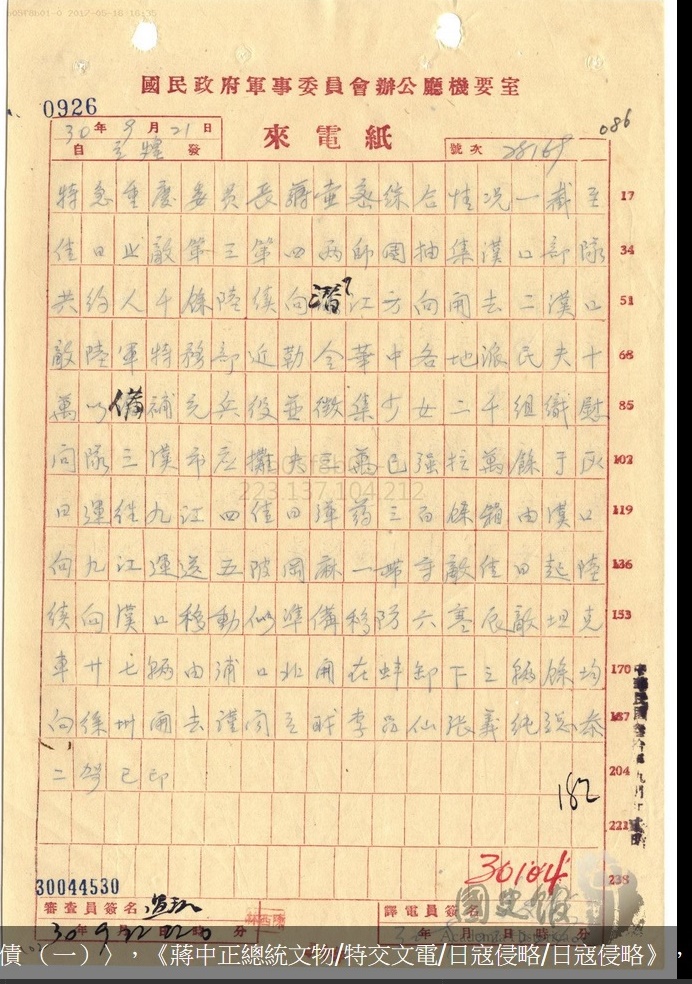 0926
國民政府軍事委員會辦公廳機要室
086
30年9月21日
自立煌發
來電紙
號次 28169
特急重慶委員長蔣壹密綜合情况一截至 17
佳日止敵第三第四兩師團抽集漢口部隊 34
共約八千餘陸續向潛江方向開去二漢口 51
敵陸軍特務部近勒令華中各地派民夫十 68
萬以備補充兵役並徵集少女二千組織慰 85
問隊三漢市應攤夫三萬已强拉萬餘于灰 102
日運往九江四佳日彈葯三百餘箱由漢口 119
向九江運送五陂岡麻一帶守敵佳日起陸 136
續向漢口移動似準備移防六寒辰敵坦克 153
車廿七輛由浦口北開在蚌卸下三輛餘均 170
向徐州開去謹聞立煌李品仙張義純 187
二 已印 204
182
221
238
30104
30044530
審查員簽名
譯電員簽名
30年9月22日220時 分
年 月 日 時 分
國史館
Academia Historica
223.137.104.212
債 （一）〉，《蔣中正總統文物/特交文電/日寇侵略/日寇侵略》，